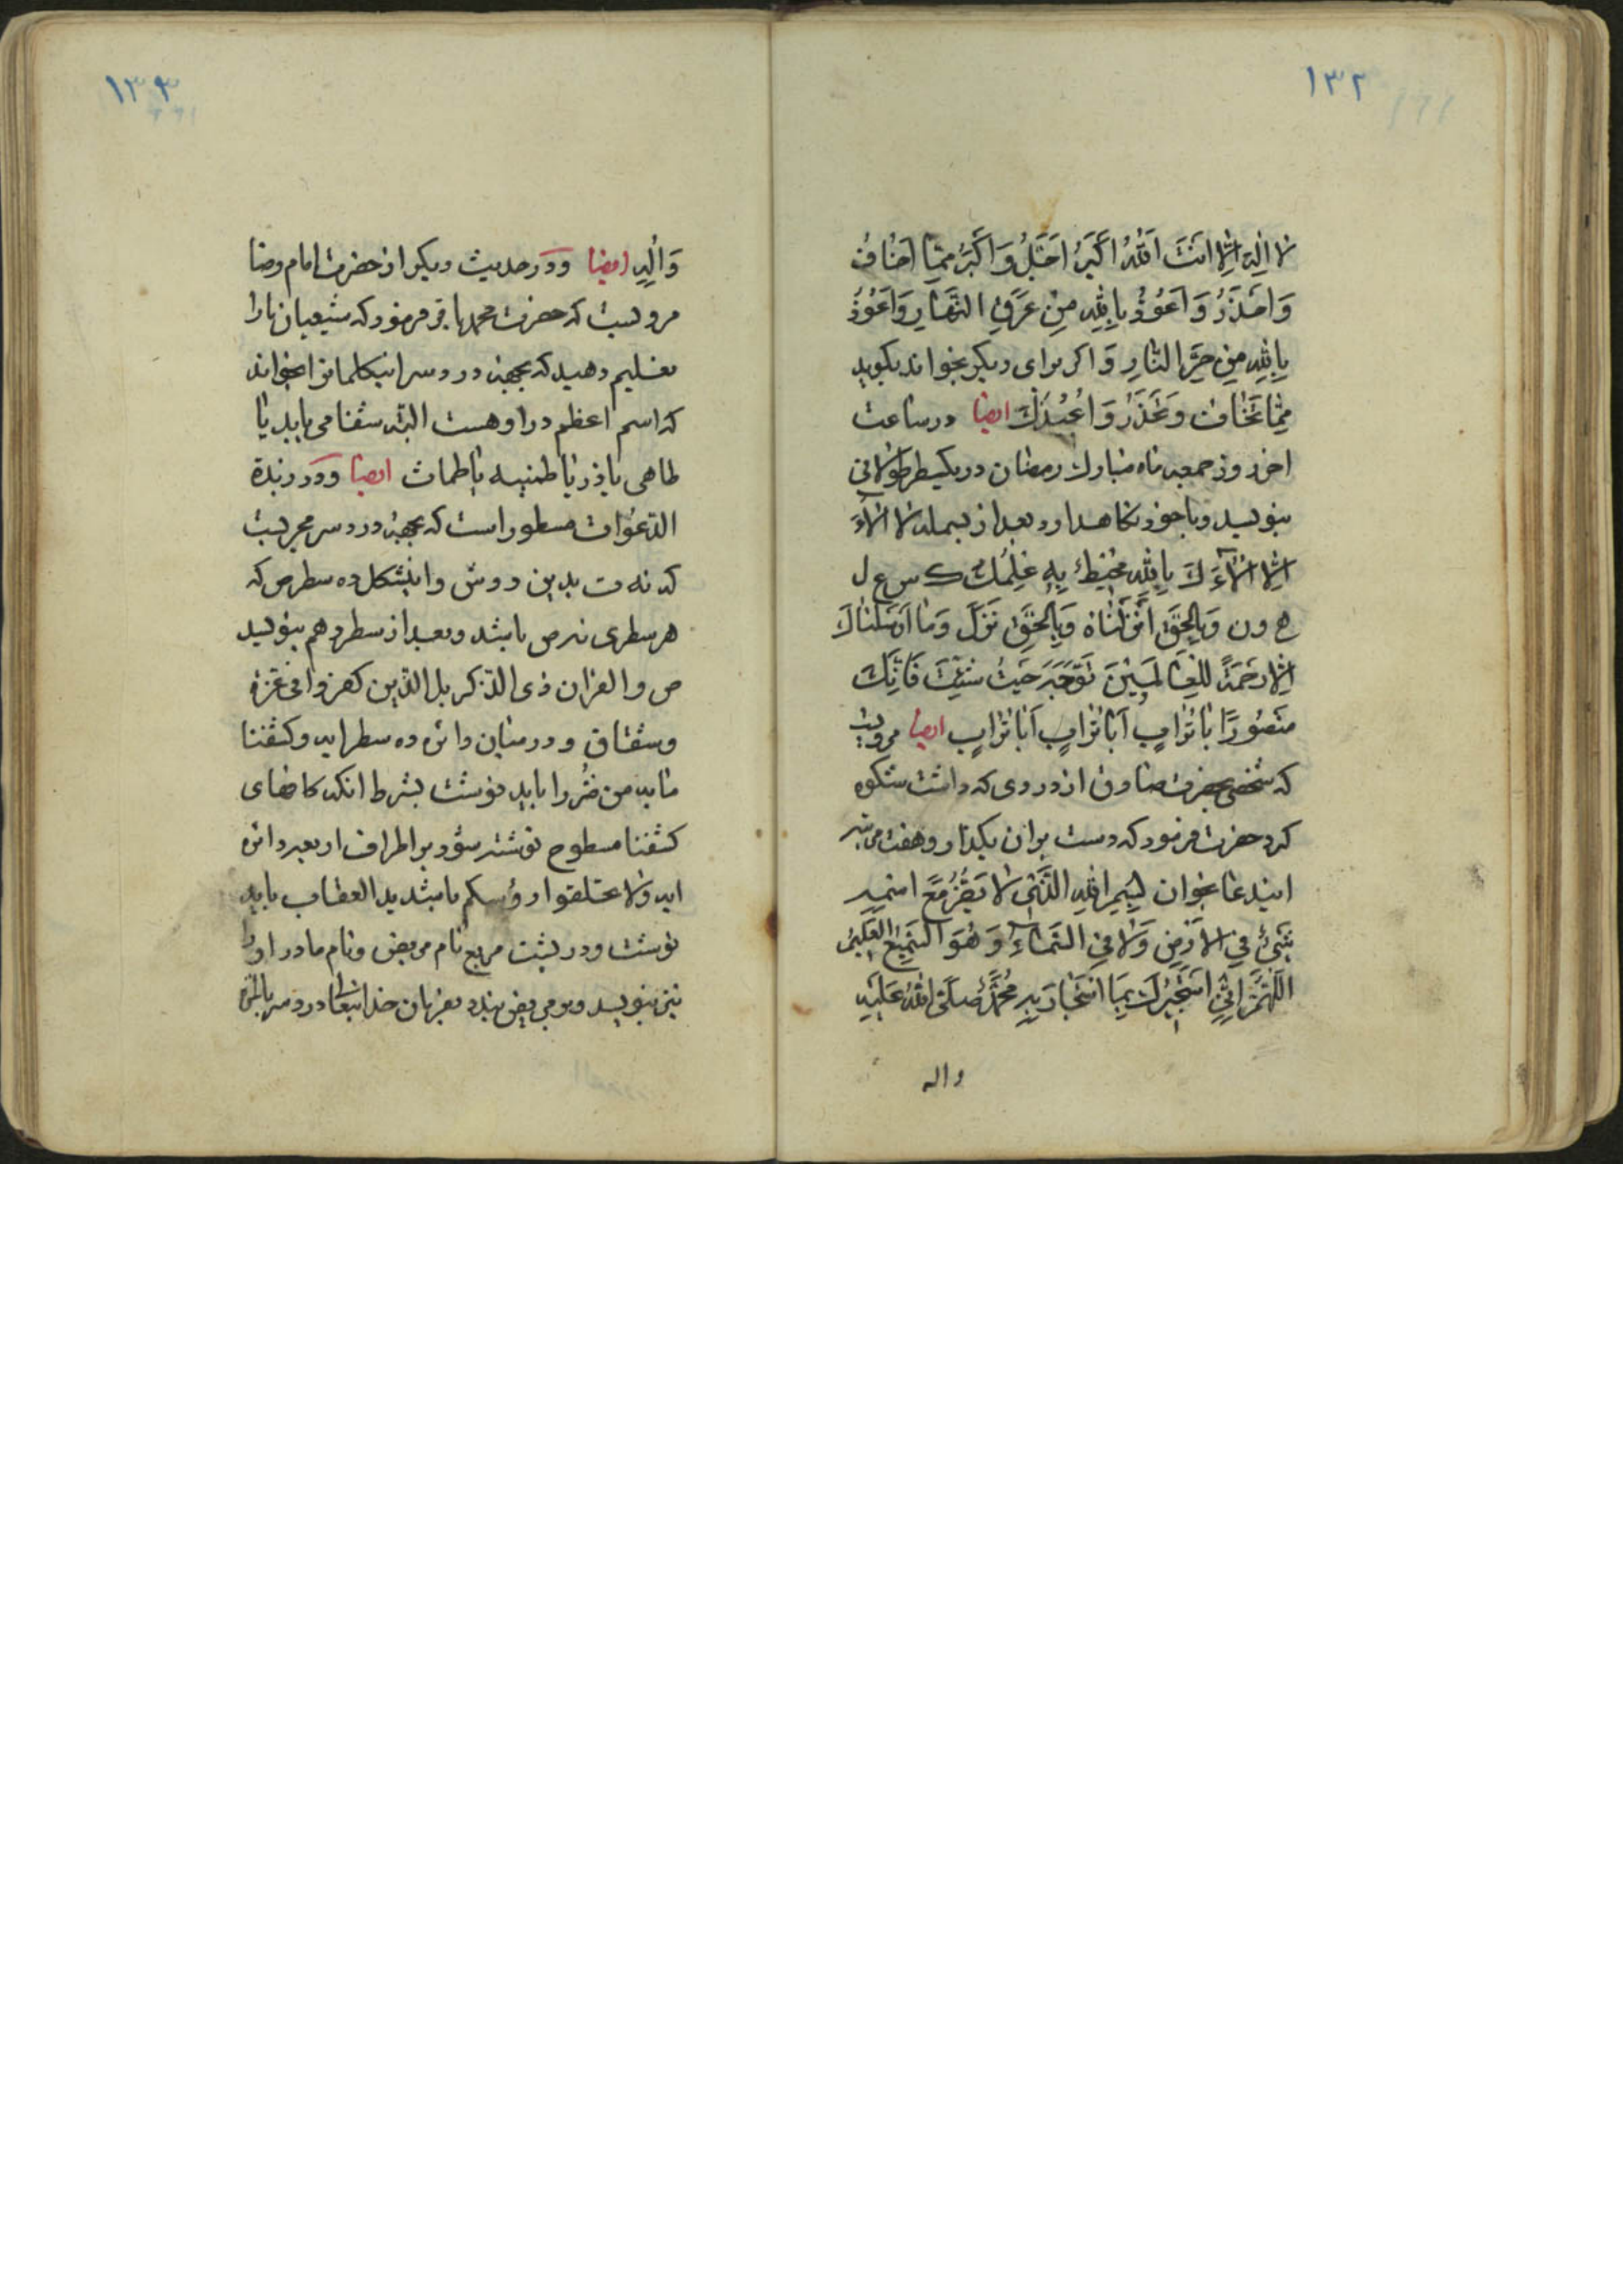 ۱۳۲
لا اِلٰهَ اِلّا اَنتَ اَللهُ اَکبَرُ اَجَلُّ وَاَکبَرُ مِمّا اَخافُ
وَاَحذَرُ وَاَعُوذُ بِاللهِ مِن عَرَقِ النَّارِ وَاَعُوذُ
بِاللهِ مِن حَرِّ النّارِ وَاکر برای دیکر بخواند بکوید
مِمّا تَخافُ وَتَحذَرُ وَاُعیذُكَ ایضا در ساعت
اخر روز جمعه ماه مبارك رمضان در یکسطر طولانی
بنویسد وبا خود نکاهدارد بعد از بسمله لا الاء
اِلّا الاءَكَ یا اَللهُ محیطُ بِهِ عِلمُكَ ك س ع ل
ه و ن وَبِالحَقِّ اَنزَلناهُ وَبِالحَقِّ نَزَلَ وَما اَرسَلناكَ
اِلّا رَحمَةً لِلعالَمینَ تَوَجَّه حَیثُ شِئتَ فَاِنَّكَ
مَنصُورًا باتُرابٍ اَباتُرابٍ اَباتُرابٍ ایضا مرویست
که شخصی بحضرت صادق از دردی که داشت شکوه
کرد حضرت فرمود که دست بران بکذار وهفت مرتبه
ایندعا بخوان بِسمِ اللهِ الَّذی لا یَضُرُّ مَعَ اسمِهِ
شَیءٌ فِی الاَرضِ وَلا فِی السَّماءِ وَهُوَ السَّمیعُ العَلیمُ
اَللّهُمَّ اِنّی اَستَجیرُكَ بِمَا استَجارَ بِهِ مُحَمَّدٌ صَلَّی اللهُ عَلَیهِ
واله
۱۳۳
وَآلِهِ ایضا ودر حدیث دیکر از حضرت امام رضا
مرویست که حضرت محمد باقر فرمود که شیعیان مارا
تعلیم دهید که بجهة درد سر اینکلماترا بخواند
که اسم اعظم در او هست البته شفا می یابد یا
طاهی یا ذر یا طمنیه یا طمات ایضا ودر زبدة
الدعوات مسطور است که بجهة درد سر مجربست
که نه ت بدین روش واینشکل ده سطر ص که
هر سطری نه ص باشد وبعد از سطر دهم بنویسد
ص والقران ذی الذکر بل الذین کفروا فی عزة
وشقاق ودر میان دائره ده سطر ایه وکشفنا
ما به من ضُر را باید نوشت بشرط انکه کافهای
کشفنا مسطوح نوشته شود بر اطراف اربعه دائره
ایه ولا تحلقوا رؤسکم تا شدید العقاب باید
نوشت ودر پشت مربع نام مریض ونام مادر اورا
نیز بنویسد وبر مریض بندد بفرمان خدایتعا درد سر بالمرة